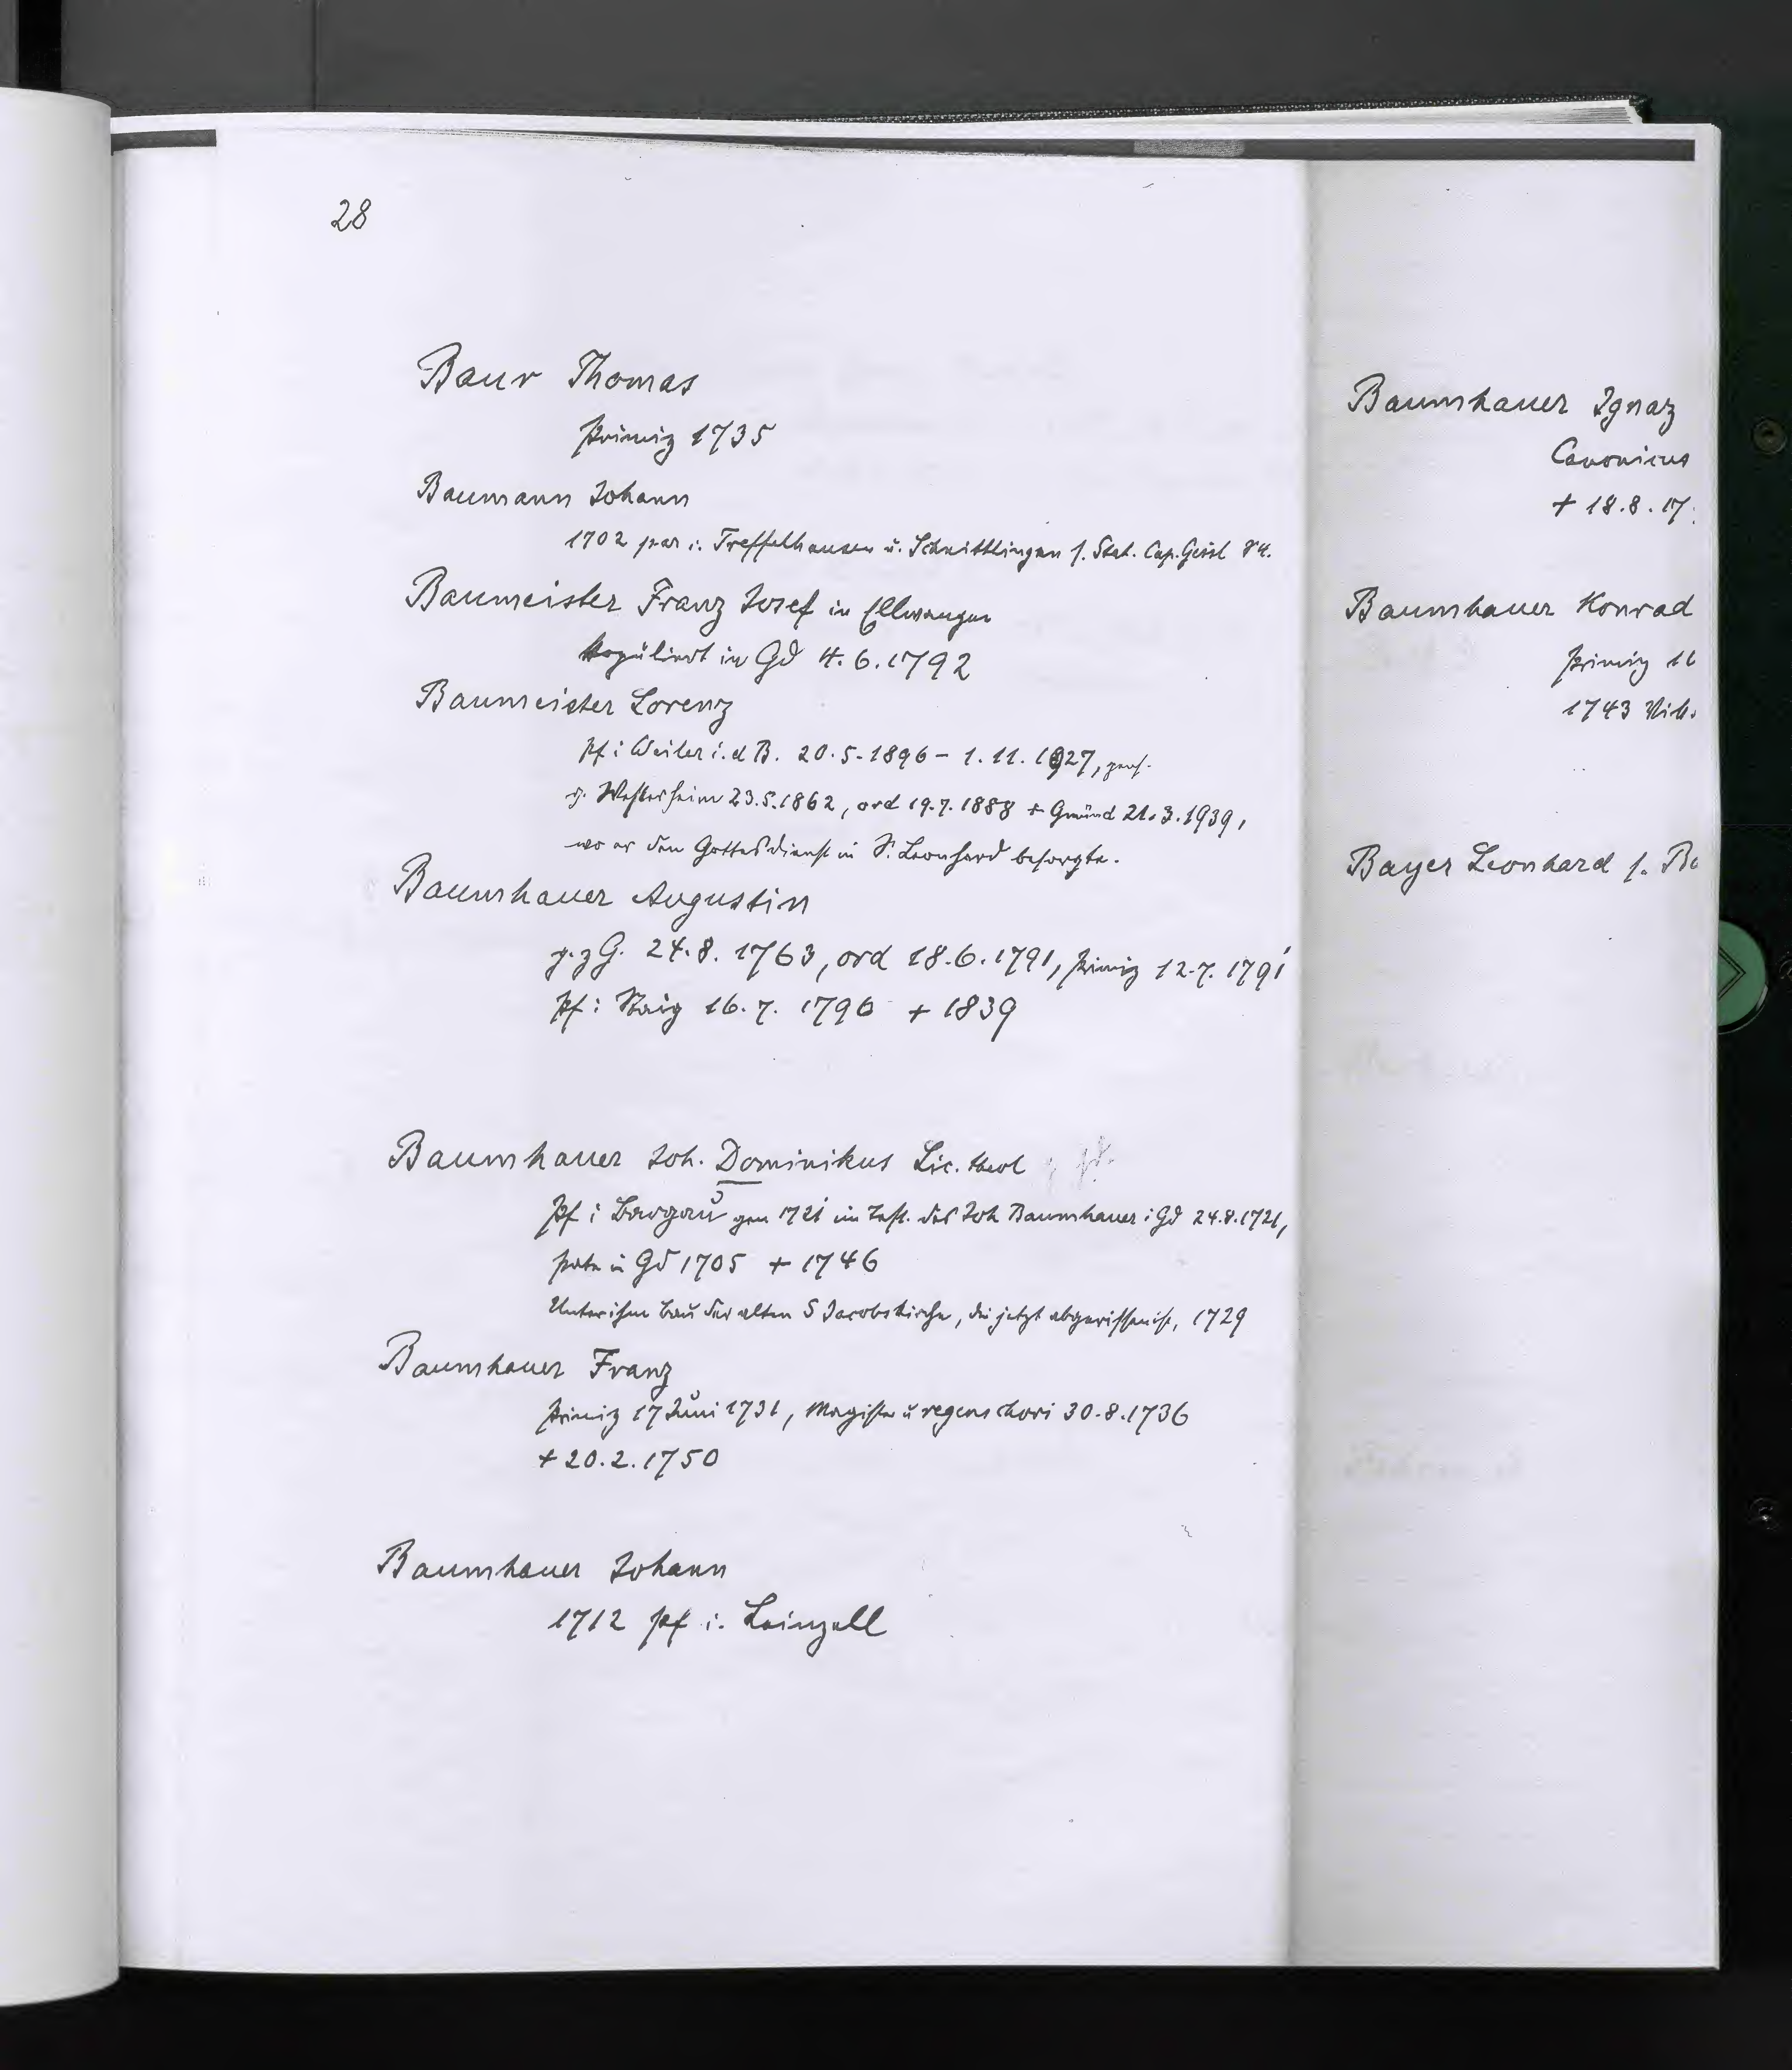 28
Baur Thomas
Primiz 1735
Baumann Johann
1702 par i. Treffelhausen u. Schnittlingen s. Stat. Cap. Geisl 84.
Baumeister Franz Josef in Ellwangen
kopuliert in Gd 4.6.1792
Baumeister Lorenz
Pf i Weiler i. d B. 20.5.1896 – 1.11.1927, pens.
g. Westerheim 23.5.1862, ord 19.7.1888 + Gmünd 21.3.1939,
wo er den Gottesdienst in S. Leonhard besorgte.
Baumhauer Augustin
g. z G. 24.8.1763, ord 18.6.1791, Primiz 12.7.1791
Pf i Staig 16.7.1796 + 1839
Baumhauer Joh. Dominikus Lic. theol
Pf i Bargau gen 1721 im Test. des Joh Baumhauer i Gd 24.8.1721,
Pate in Gd 1705 + 1746
Unter ihm Bau der alten S Jacobskirche, die jetzt abgerissen ist, 1729
Baumhauer Franz
Primiz 17 Juni 1731, Magister u regens chori 30.8.1736
+ 20.2.1750
Baumhauer Johann
1712 Pf i. Leinzell
Baumhauer Ignaz
Canonicus
+ 18.8.17
Baumhauer Konrad
Primiz 16
1743
Bayer Leonhard s.